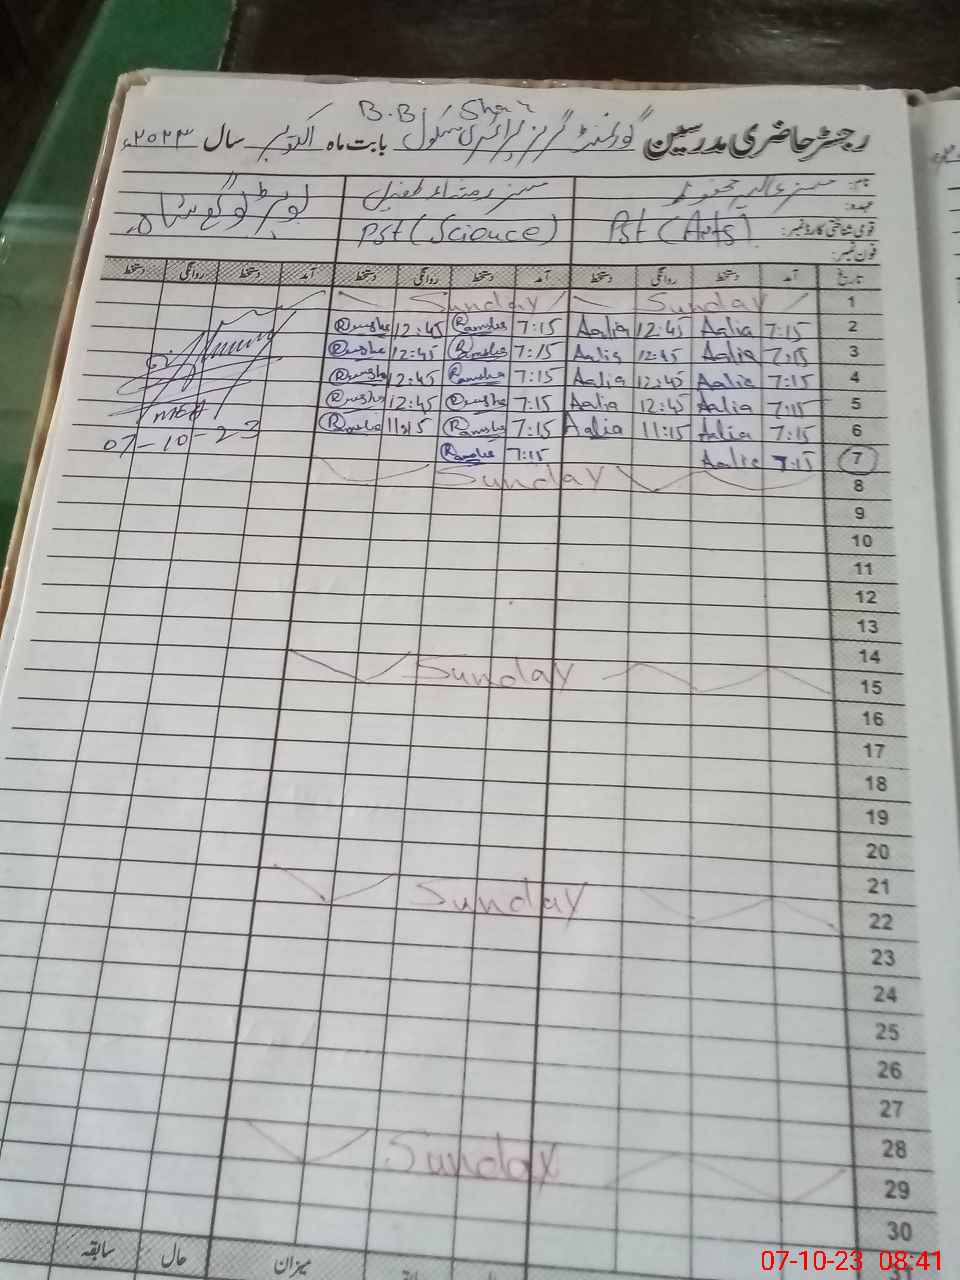 B.B Shah
رجسٹر حاضری مدرسین گورنمنٹ گرلز پرائمری سکول بابت ماہ اکتوبر سال ۲۰۲۳ء
نام:
عہدہ:
قومی شناختی کارڈ نمبر: Pst (Arts) Pst (Science)
فون نمبر:
تاریخ آمد دستخط روانگی دستخط آمد دستخط روانگی دستخط آمد دستخط روانگی دستخط
1 Sunday Sunday
2 7:15 Aalia 12:45 Aalia 7:15 Ramsha 12:45 Ramsha
3 7:15 Aalia 12:45 Aalia 7:15 Ramsha 12:45 Ramsha
4 7:15 Aalia 12:45 Aalia 7:15 Ramsha 12:45 Ramsha
5 7:15 Aalia 12:45 Aalia 7:15 Ramsha 12:45 Ramsha
6 7:15 Aalia 11:15 Aalia 7:15 Ramsha 11:15 Ramsha
7 7:15 Aalia 7:15 Ramsha
07-10-23
8 Sunday
9
10
11
12
13
14
15 Sunday
16
17
18
19
20
21
22 Sunday
23
24
25
26
27
28
29 Sunday
30
31
میزان حال سابقہ
07-10-23 08:41